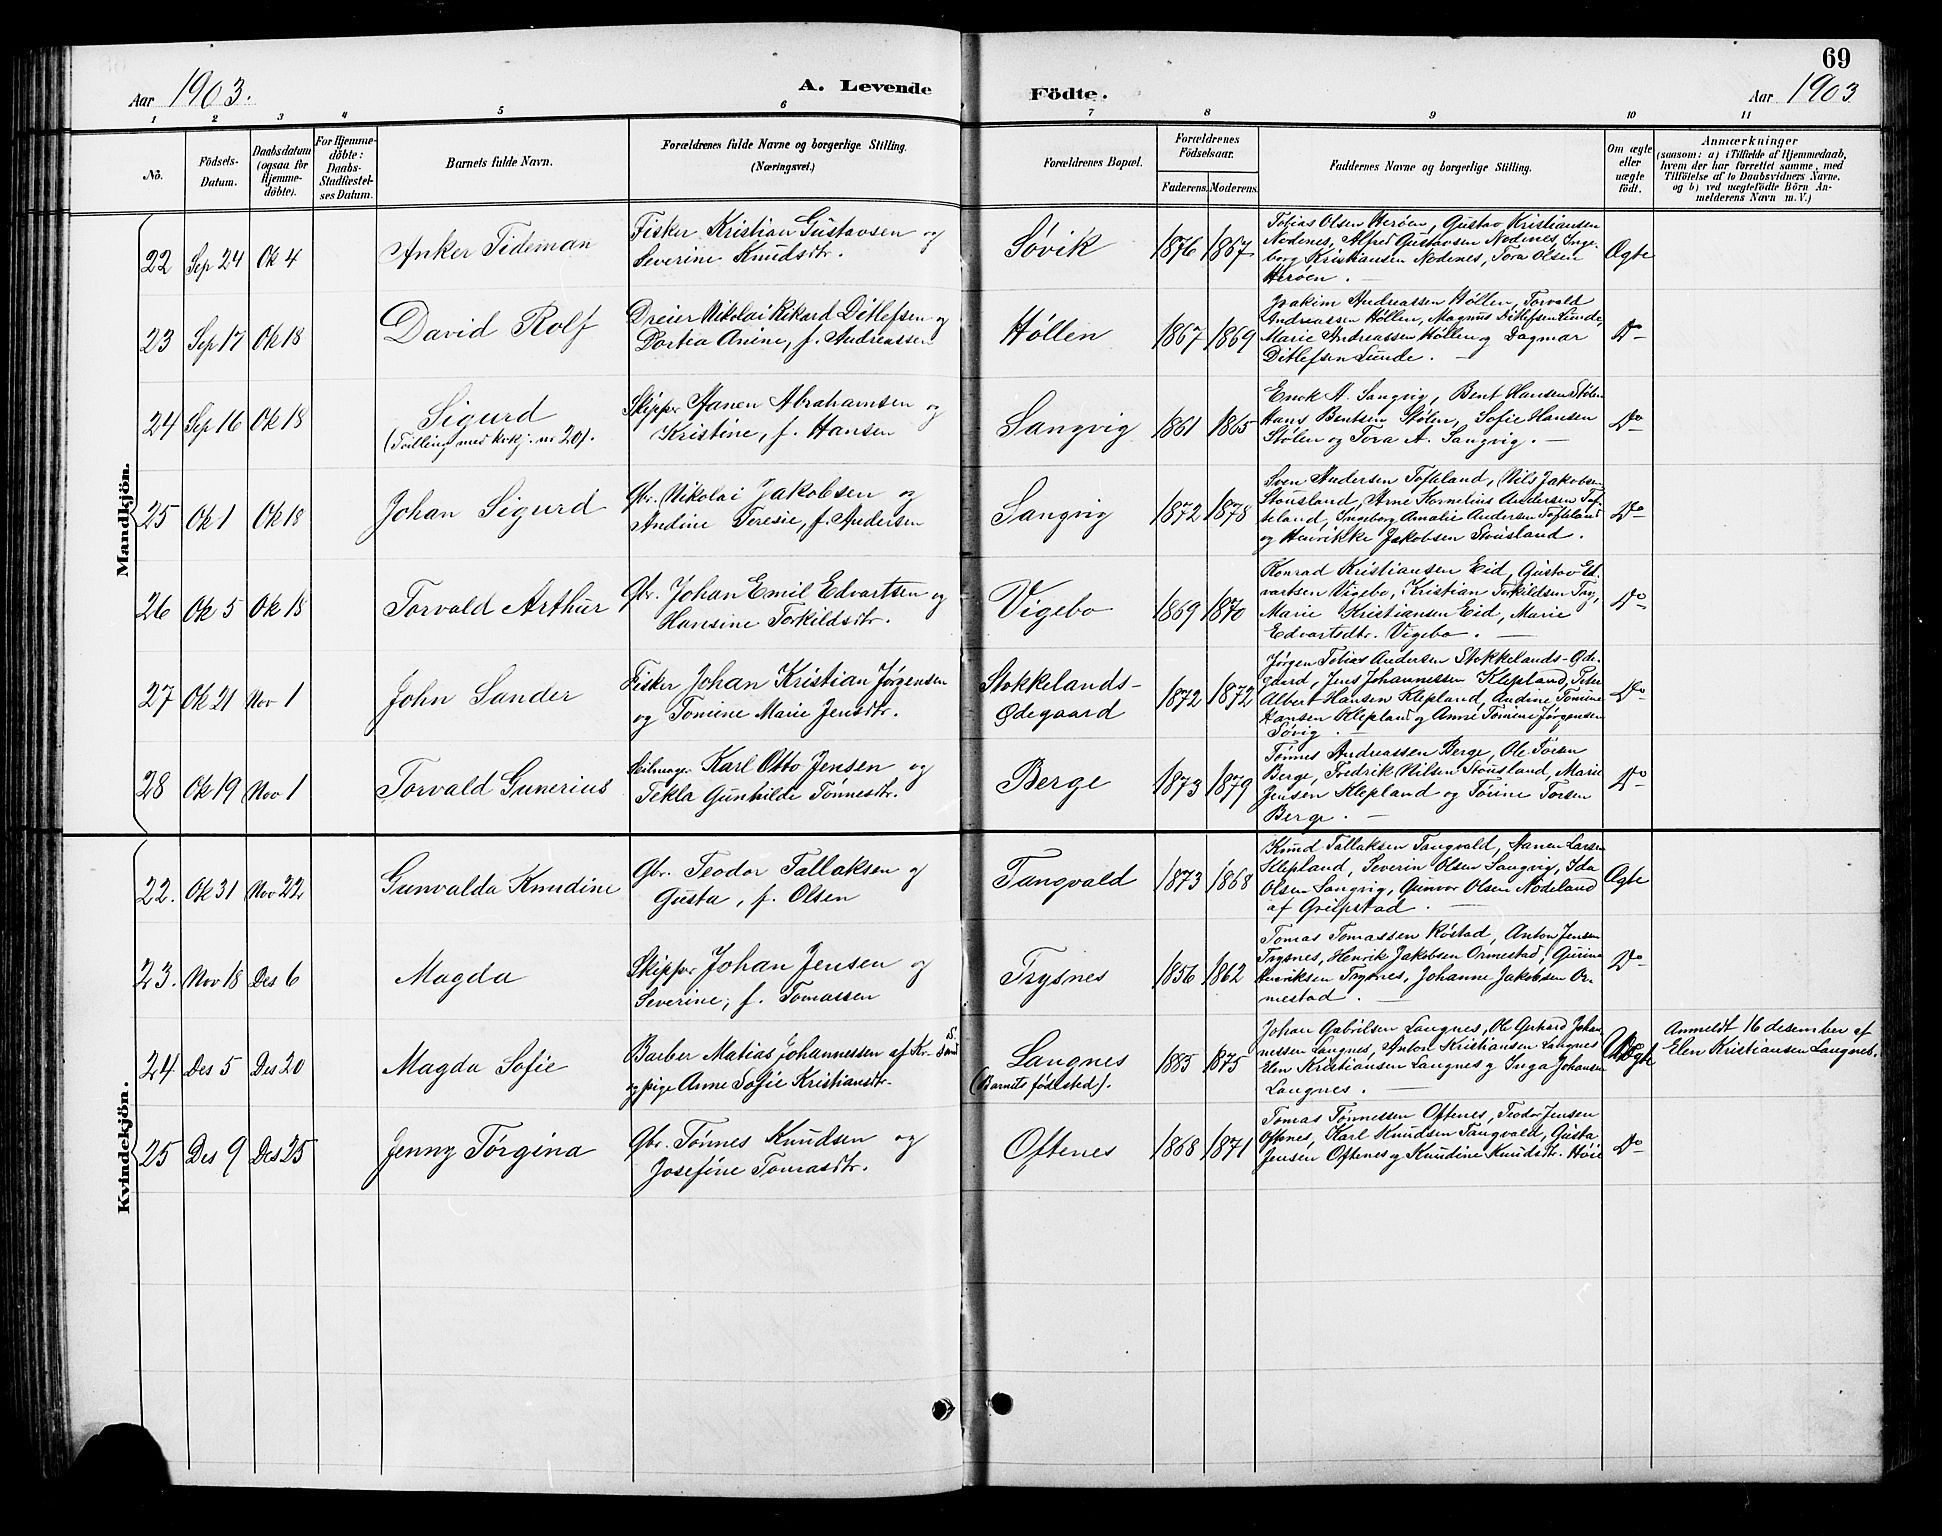 69
Aar 1903.
A. Levende Födte.
Aar 1903
1 2 3 4 5 6 7 8 9 10 11
No.
Födsels-Datum.
Daabsdatum (ogsaa for Hjemmedöbte).
For Hjemmedöbte: Daabs-Stadfæstelses Datum.
Barnets fulde Navn.
Forældrenes fulde Navne og borgerlige Stilling.
(Næringsvei.)
Forældrenes Bopæl.
Forældrenes Födselsaar.
Faderens. Moderens.
Faddernes Navne og borgerlige Stilling.
Om ægte eller uægte födt.
Anmærkninger
(saasom: a) i Tilfælde af Hjemmedaab, hvem der har forrettet samme, med Tilföielse af to Daabsvidners Navne, og b) ved uægtefödte Börn Anmelderens Navn m. V.)
Mandkjön.
22 Sep 24 Ok 4 Anker Tideman
Fisker Kristian Gustavsen og
Severine Knudsdtr.
Søvik 1876 1867
Tobias Olsen Herøen, Gustav Kristiansen
Nodenes, Alfred Gustavsen Nodenes, Inge-
borg Kristiansen Nodenes, Tora Olsen
Herøen. —
Ægte
23 Sep 17 Ok 18 David Rolf
Dreier Nikolai Rikard Ditlefsen og
Dortea Anine, f. Andreassen
Høllen 1867 1869
Joakim Andreassen Høllen, Torvald
Andreassen Høllen, Magnus Ditlefsen Lunde,
Marie Andreassen Høllen og Dagmar
Ditlefsen Lunde. —
Do
24 Sep 16 Ok 18 Sigurd
(Tvilling med kvkj. nr 20).
Skipper Aanen Abrahamsen og
Kristine, f. Hansen
Sangvig 1861 1865
Enok A. Sangvig, Bent Hansen Stølen
Hans Bentsen Stølen, Sofie Hansen
Stølen og Tora A. Sangvig. —
Do
25 Ok 1 Ok 18 Johan Sigurd
Gbr. Nikolai Jakobsen og
Andine Teresie, f. Andersen
Sangvig 1872 1878
Sven Andersen Tofteland, Nils Jakobsen
Stousland, Arne Kornelius Andersen Tof-
teland, Ingeborg Amalie Andersen Tofteland
og Henrikke Jakobsen Stousland.
Do
26 Ok 5 Ok 18 Torvald Arthur
Gbr. Johan Emil Edvartsen og
Hansine Torkildsdtr.
Vigebo 1869 1870
Konrad Kristiansen Eid, Gustav Ed-
vartsen Vigebo, Kristian Torkildsen Try,
Marie Kristiansen Eid, Marie
Edvartsdtr. Vigebo. —
Do
27 Ok 21 Nov 1 John Sander
Fisker Johan Kristian Jørgensen
og Tomine Marie Jensdtr.
Stokkelands-
Ødegaard 1872 1872
Jørgen Tobias Andersen Stokkelands-Øde-
gaard, Jens Johannessen Klepland, Peter
Albert Hansen Klepland, Andine Tomine
Hansen Klepland og Anne Tomine Jørgensen
Søvig. —
Do
28 Ok 19 Nov 1 Torvald Gunerius
Seilmager Karl Otto Jensen og
Tekla Gunhilde Tønnesdtr.
Berge 1873 1879
Tønnes Andreassen Berge, Ole Torsen
Berge, Fredrik Nilsen Stousland, Marie
Jensen Klepland og Tørine Torsen
Berge. —
Do
Kvindekjön.
22. Ok 31 Nov 22 Gunvalda Knudine
Gbr. Teodor Tallaksen og
Gusta, f. Olsen
Tangvald 1873 1868
Knud Tallaksen Tangvald, Aanen Larsen
Klepland, Severin Olsen Sangvig, Ida
Olsen Sangvig, Gunvor Olsen Nodeland
af Gripstad. —
Ægte
23. Nov 18 Des 6 Magda
Skipper Johan Jensen og
Severine, f. Tomassen
Trysnes 1856 1862
Tomas Tomassen Røstad, Anton Jensen
Trysnes, Henrik Jakobsen Ormestad, Gurine
Henriksen Trysnes, Johanne Jakobsen Or-
mestad. —
Do
24 Des 5 Des 20 Magda Sofie
Barber Matias Johannessen af Kr.sand S.
og pige Anne Sofie Kristiansdtr.
Langnes
(Barnets fødested).
1885 1875
Johan Gabrilsen Langnes, Ole Gerhard Johan-
nessen Langnes, Anton Kristiansen Langnes
Elen Kristiansen Langnes og Inga Johansen
Langnes. —
Uægte
Anmeldt 16 desember af
Elen Kristiansen Langnes.
25 Des 9 Des 25 Jenny Tørgina
Gbr. Tønnes Knudsen og
Josefine Tomasdtr.
Oftenes 1868 1871
Tomas Tønnessen Oftenes, Teodor Jensen
Oftenes, Karl Knudsen Tangvald, Gusta
Jensen Oftenes og Knudine Knudsdtr. Høie
Do